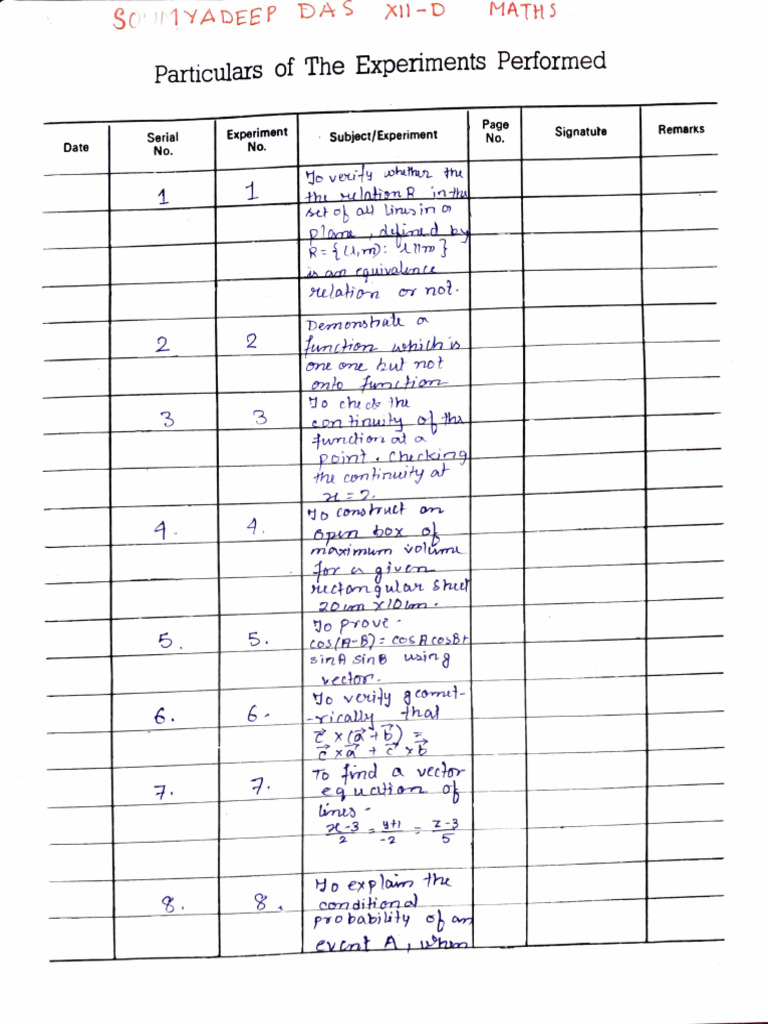 SOUMYADEEP DAS XII-D MATHS
Particulars of The Experiments Performed
Date Serial No. Experiment No. Subject/Experiment Page No. Signature Remarks
1 1 To verify whether the
the relation R in the
set of all lines in a
plane, defined by
R = {(l,m): l || m}
is an equivalence
relation or not.
2 2 Demonstrate a
function which is
one one but not
onto function
3 3 To check the
continuity of the
function at a
point. Checking
the continuity at
x = 2.
4. 4. To construct an
open box of
maximum volume
for a given
rectangular sheet
20cm x 10cm.
5. 5. To prove -
cos(A-B) = cosA cosB+
sinA sinB using
vector.
6. 6. To verify geomet-
-rically that
c⃗ × (a⃗ + b⃗) =
c⃗ × a⃗ + c⃗ × b⃗
7. 7. To find a vector
equation of
lines -
x-3/2 = y+1/-2 = z-3/5
8. 8. To explain the
conditional
probability of an
event A, when